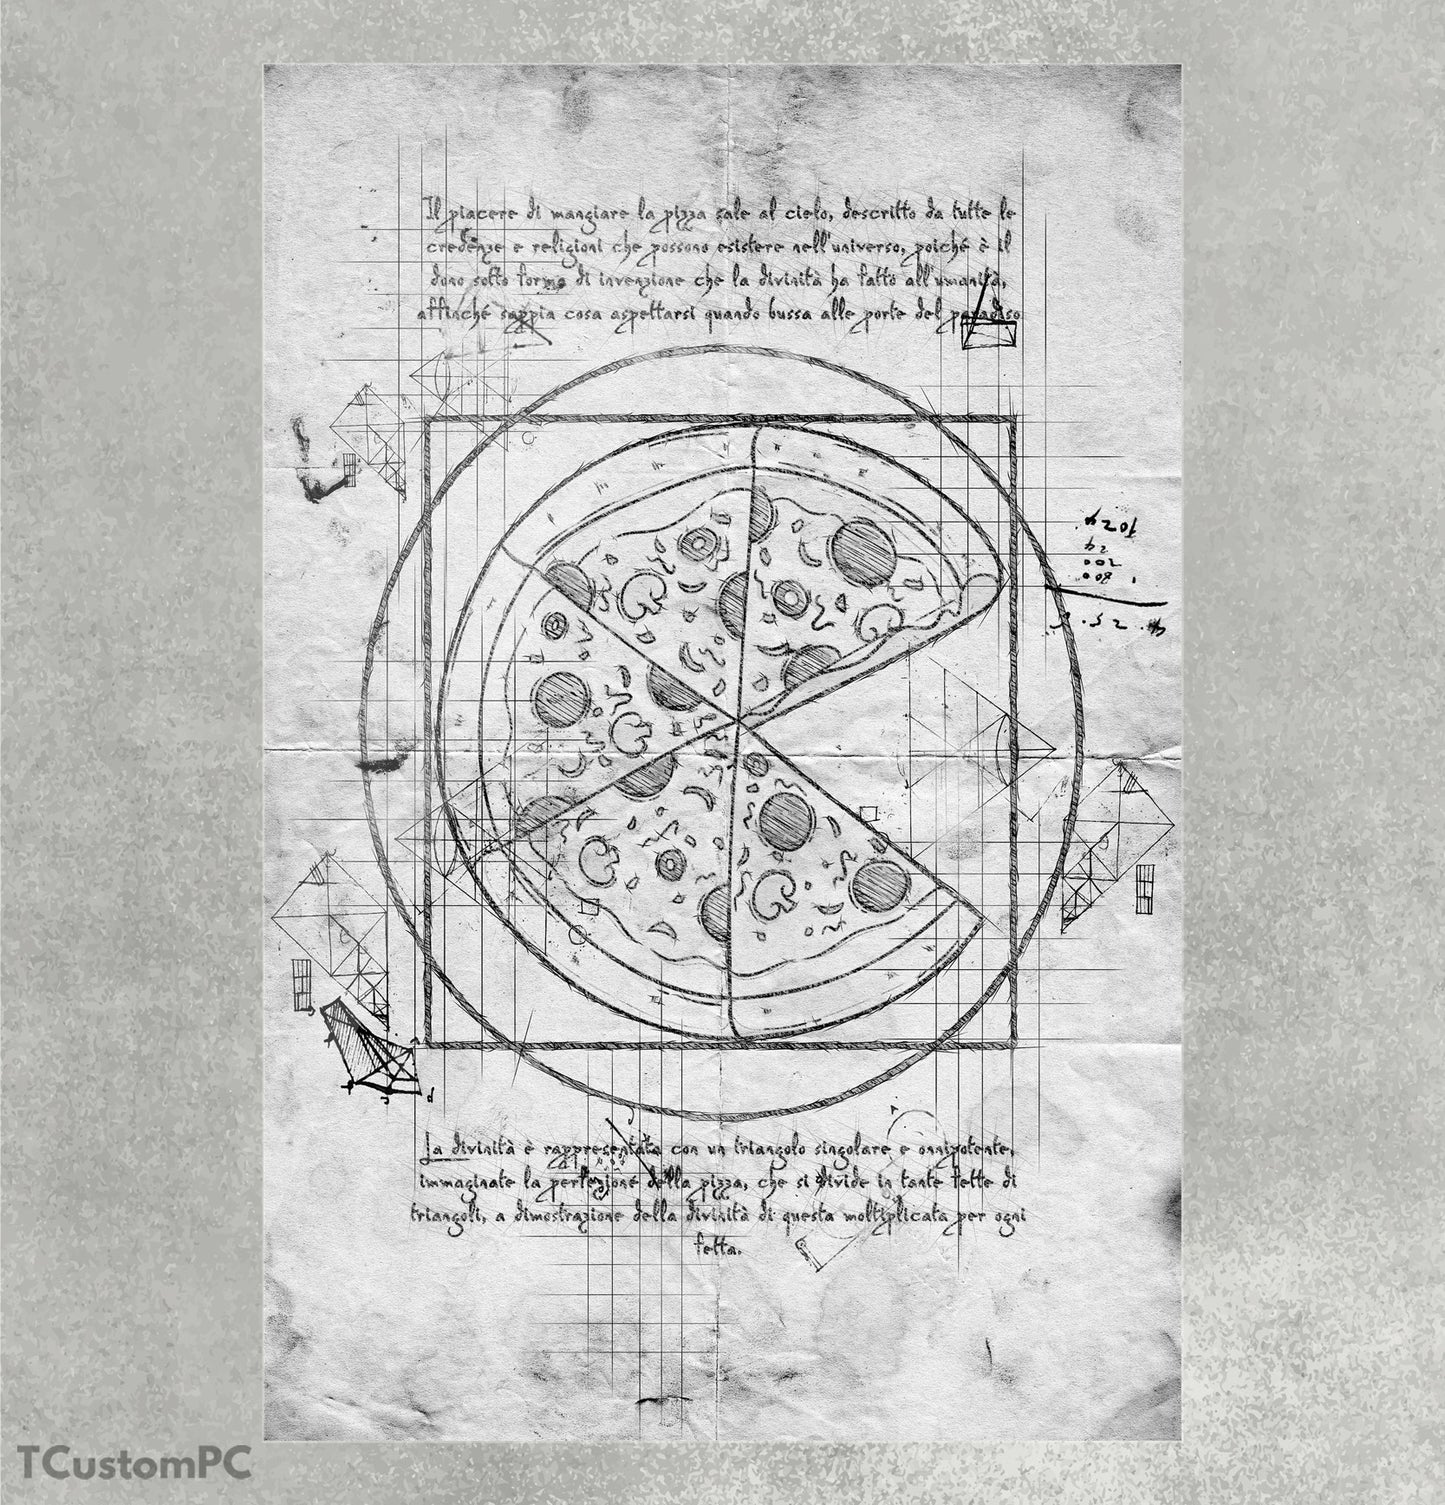 Il piacere di mangiare la pizza sale al cielo, descritto da tutte le
credenze e religioni che possono esistere nell'universo, poiché è il
dono sotto forma di invenzione che la divinità ha fatto all'umanità,
affinché sappia cosa aspettarsi quando bussa alle porte del paradiso
La divinità è rappresentata con un triangolo singolare e onnipotente,
immaginate la perfezione della pizza, che si divide in tante fette di
triangoli, a dimostrazione della divinità di questa moltiplicata per ogni
fetta.
TCustomPC